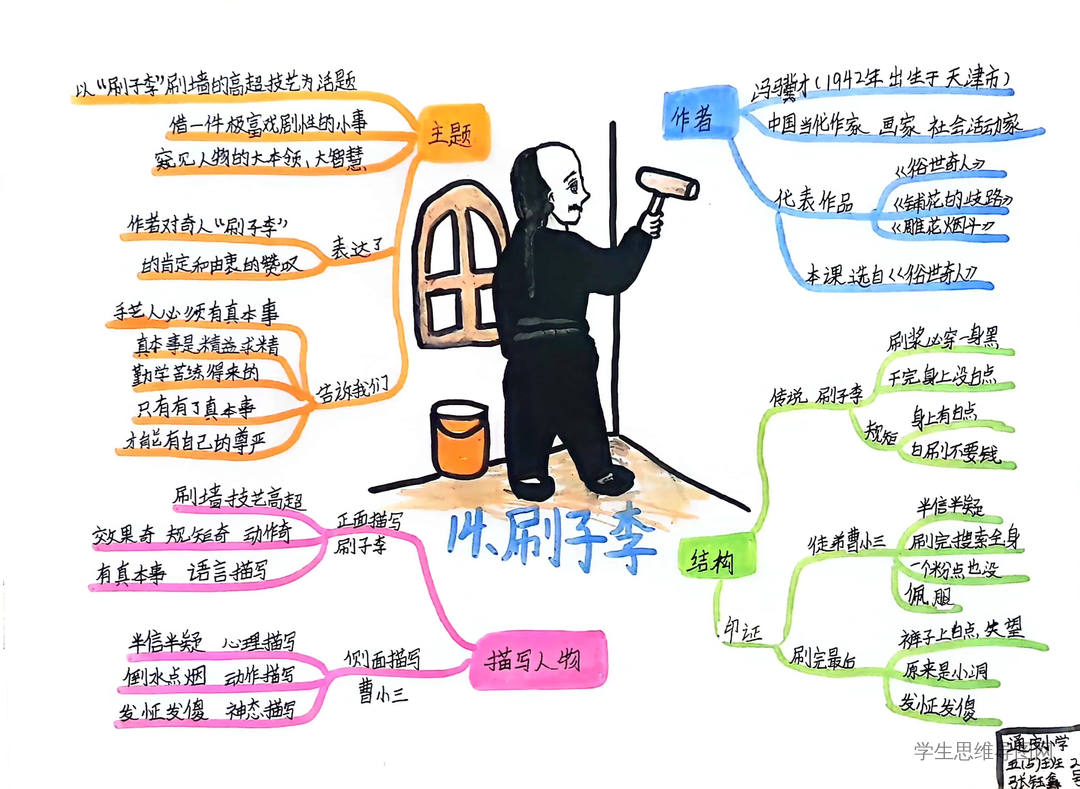 14、刷子李
作者
冯骥才(1942年出生于天津市)
中国当代作家 画家 社会活动家
代表作品
《俗世奇人》
《铺花的歧路》
《雕花烟斗》
本课选自《俗世奇人》
结构
传说 刷子李
刷浆必穿一身黑
干完身上没白点
规矩
身上有白点
白刷不要钱
印证
徒弟曹小三
半信半疑
刷完搜索全身
一个粉点也没
佩服
刷完最后
裤子上白点,失望
原来是小洞
发怔发傻
主题
以“刷子李”刷墙的高超技艺为话题
借一件极富戏剧性的小事
窥见人物的大本领、大智慧
表达了
作者对奇人“刷子李”
的肯定和由衷的赞叹
告诉我们
手艺人必须有真本事
真本事是精益求精
勤学苦练得来的
只有有了真本事
才能有自己的尊严
描写人物
正面描写
刷子李
刷墙技艺高超
效果奇 规矩奇 动作奇
有真本事 语言描写
侧面描写
曹小三
半信半疑 心理描写
倒水点烟 动作描写
发怔发傻 神态描写
小学
学生思维导图网